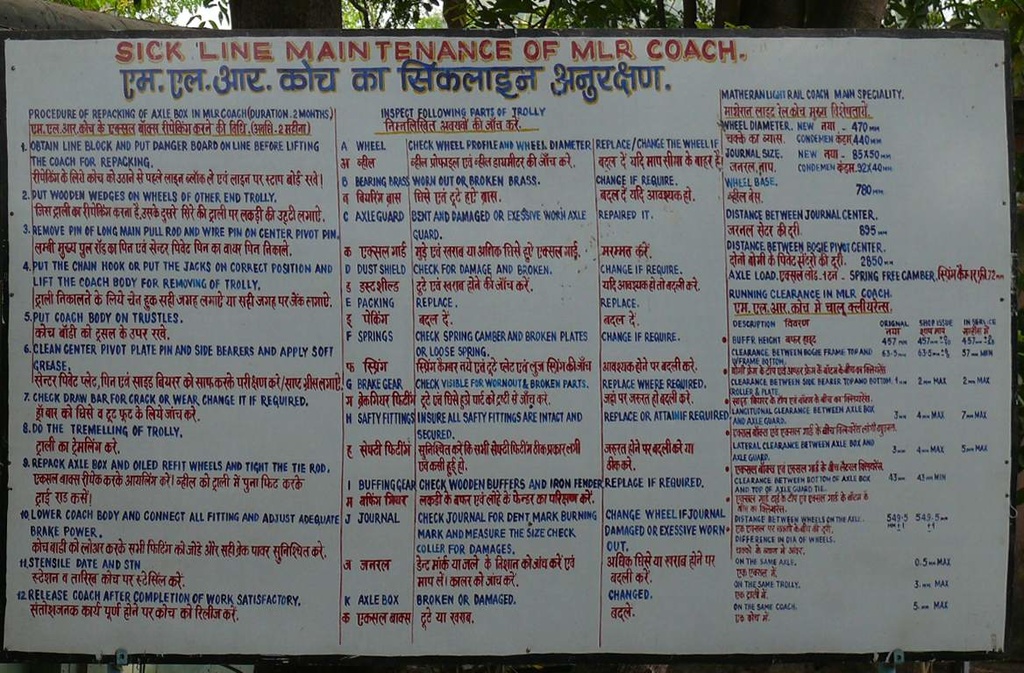 SICK LINE MAINTENANCE OF MLR COACH.
एम.एल.आर. कोच का सिकलाइन अनुरक्षण.
PROCEDURE OF REPACKING OF AXLE BOX IN MLR COACH (DURATION. 2 MONTHS)
एम.एल.आर. कोच के एक्सल बाक्स रीपेकिंग करने की विधि. (अवधि. 2 महीना)
1. OBTAIN LINE BLOCK AND PUT DANGER BOARD ON LINE BEFORE LIFTING
THE COACH FOR REPACKING.
रीपेकिंग के लिये कोच को उठाने से पहले लाइन ब्लॉक ले एवं लाइन पर स्टाप बोर्ड रखे।
2. PUT WOODEN WEDGES ON WHEELS OF OTHER END TROLLY.
जिस ट्राली का रीपेकिंग करना है, उसके दुसरे सिरे की ट्राली पर लकड़ी की उट्टी लगाऐ.
3. REMOVE PIN OF LONG MAIN PULL ROD AND WIRE PIN ON CENTER PIVOT PIN.
लम्बी मुख्य पुल रॉड का पिन एवं सेन्टर पिवेट पिन का वायर पिन निकाले.
4. PUT THE CHAIN HOOK OR PUT THE JACKS ON CORRECT POSITION AND
LIFT THE COACH BODY FOR REMOVING OF TROLLY.
ट्राली निकालने के लिये चेन हुक सही जगह लगाऐ या सही जगह पर जेंक लगाऐ.
5. PUT COACH BODY ON TRUSTLES.
कोच बॉडी को ट्रसल के उपर रखे.
6. CLEAN CENTER PIVOT PLATE PIN AND SIDE BEARERS AND APPLY SOFT
GREASE.
सेन्टर पिवेट प्लेट, पिन एवं साइड बियरर को साफ करके परीक्षण करें/साफ्ट ग्रीस लगाऐ.
7. CHECK DRAW BAR FOR CRACK OR WEAR CHANGE IT IF REQUIRED.
ड्रॉ बार को घिसे व टूट फूट के लिये जाँच करे.
8. DO THE TREMELLING OF TROLLY.
ट्राली का ट्रेमलिंग करे.
9. REPACK AXLE BOX AND OILED REFIT WHEELS AND TIGHT THE TIE ROD.
एक्सल बाक्स रीपेक करके आयलिंग करें। व्हील को ट्राली में पुनः फिट करके
टाई राड कसें।
10. LOWER COACH BODY AND CONNECT ALL FITTING AND ADJUST ADEQUATE
BRAKE POWER.
कोच बाडी को लोअर करके सभी फिटिंग को जोडे और सही ब्रेक पावर सुनिश्चित करें.
11. STENSILE DATE AND STN
स्टेशन व तारिख कोच पर स्टेंसिल करें.
12. RELEASE COACH AFTER COMPLETION OF WORK SATISFACTORY.
संतोशजनक कार्य पूर्ण होने पर कोच को रिलीज करें.
INSPECT FOLLOWING PARTS OF TROLLY
निम्नलिखित अवयवों की जाँच करे.
A WHEEL CHECK WHEEL PROFILE AND WHEEL DIAMETER REPLACE/CHANGE THE WHEEL IF
अ व्हील व्हील प्रोफाइल एवं व्हील डायमीटर की जाँच करे. बदल दें यदि माप सीमा के बाहर हैं
B BEARING BRASS WORN OUT OR BROKEN BRASS. CHANGE IF REQUIRE.
ब बियरिंग ब्रास घिसे एवं टूटे हुऐ ब्रास. बदल दें यदि आवश्यक हो.
C AXLEGUARD BENT AND DAMAGED OR EXESSIVE WORN AXLE REPAIRED IT.
GUARD.
क एक्सल गार्ड मुड़े एवं खराब या अधिक घिसे हुए एक्सल गार्ड. मरम्मत करें.
D DUST SHIELD CHECK FOR DAMAGE AND BROKEN. CHANGE IF REQUIRE.
ड डस्टशील्ड टूटे एवं खराब होने की जाँच करें. यदि आवश्यक हो तो बदली करे.
E PACKING REPLACE. REPLACE.
इ पेकिंग बदल दें. बदल दें.
F SPRINGS CHECK SPRING CAMBER AND BROKEN PLATES CHANGE IF REQUIRE.
OR LOOSE SPRING.
फ स्प्रिंग स्प्रिंग केम्बर नये एवं टूटे प्लेट एवं लुज स्प्रिंग की जाँच आवश्यक होने पर बदली करे.
G BRAKE GEAR CHECK VISIBLE FOR WORNOUT & BROKEN PARTS. REPLACE WHERE REQUIRED.
ग ब्रेकगियर फिटींग टूटे एवं घिसे हुये पार्ट की दृष्टी से जाँच करें. जहां पर जरुरत हो बदली करें.
H SAFTY FITTINGS INSURE ALL SAFTY FITTINGS ARE INTACT AND REPLACE OR ATTAIN IF REQUIRED
SECURED.
ह सेफ्टी फिटींग सुनिश्चित करें कि सभी सेफ्टी फिटींग ठीक प्रकार लगी जरुरत होने पर बदली करे या
एवं कसी हुई हो. ठीक करे.
I BUFFING GEAR CHECK WOODEN BUFFERS AND IRON FENDER REPLACE IF REQUIRED.
म बफिंग गियर लकड़ी के बफर एवं लोहे के फेन्डर का परिक्षण करें.
J JOURNAL CHECK JOURNAL FOR DENT MARK BURNING CHANGE WHEEL IF JOURNAL
MARK AND MEASURE THE SIZE CHECK DAMAGED OR EXESSIVE WORN
COLLER FOR DAMAGES. OUT.
ज जनरल डेन्ट मार्क या जले के निशान को जांच करें एवं अधिक घिसे या खराब होने पर
माप लें। कालर को जांच करें. बदली करें.
K AXLE BOX BROKEN OR DAMAGED. CHANGED.
क एकसल बाक्स टूटे या खराब. बदले.
MATHERAN LIGHT RAIL COACH MAIN SPECIALITY.
माथेरान लाइट रेल कोच मुख्य विशेषतायें.
WHEEL DIAMETER. NEW नया - 470 MM
चक्के का व्यास. CONDEMEN कंडम 440 MM
JOURNAL SIZE. NEW नया - 85X50 MM
जनरल, माप. CONDEMEN कंडम. 92X40 MM
WHEEL BASE. 780 MM.
व्हील बेस.
DISTANCE BETWEEN JOURNAL CENTER.
जरनल सेंटर की दूरी. 895 MM.
DISTANCE BETWEEN BOGIE PIVOT CENTER.
दोनो बोगी के पिवेट सेंट्रो की दूरी. 2850 MM.
AXLE LOAD. एक्सल लोड. 1 टन - SPRING FREE CAMBER.
RUNNING CLEARANCE IN MLR COACH.
एम. एल. आर. कोच में चालू क्लीयरेन्स.
DESCRIPTION विवरण ORIGINAL SHOP ISSUE IN SERVICE
BUFFR. HEIGHT बफर हाइट 457 MM
CLEARANCE BETWEEN BOGIE FRAME TOP AND 63.5 MM 57 MIN
U/FRAME BOTTOM.
CLEARANCE BETWEEN SIDE BEARER TOP AND BOTTOM. 1 MM 2 MAX 2 MAX
ROLLER & PLATE.
LANGITUDINAL CLEARANCE BETWEEN AXLE BOX 3 MM 4 MAX 7 MAX
AND AXLE GUARD.
LATERAL CLEARANCE BETWEEN AXLE BOX AND 3 MM 4 MAX 5 MAX
AXLE GUARD.
CLEARANCE BETWEEN BOTTOM OF AXLE BOX 43 MM 43 MIN
AND TOP OF AXLE GUARD TIE.
DISTANCE BETWEEN WHEELS ON THE AXLE. 549.5 549.5
एक एक्सल पर चक्को के बीच की दूरी.
DIFFERENCE IN DIA OF WHEELS.
ON THE SAME AXLE. 0.5 MM MAX
एक एक्सल में.
ON THE SAME TROLLY. 3. MM MAX
एक ट्राली में.
ON THE SAME COACH. 5. MM MAX
एक कोच में.